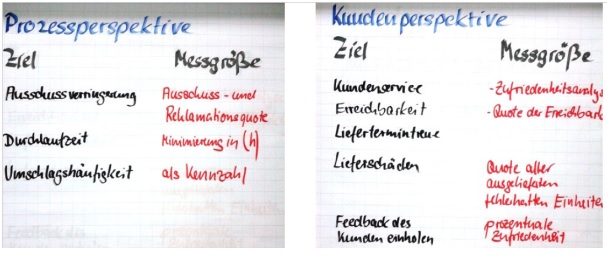 Prozessperspektive
Ziel Messgröße
Ausschussverringerung Ausschuss- und
Reklamationsquote
Durchlaufzeit Minimierung in (h)
Umschlagshäufigkeit als Kennzahl
Kundenperspektive
Ziel Messgröße
Kundenservice - Zufriedenheitsanalys
Erreichbarkeit - Quote der Erreichbark
Liefertermintreue
Lieferschäden Quote aller
ausgelieferten
fehlerhaften Einheiten
Feedback des prozentuale
Kunden einholen Zufriedenheit